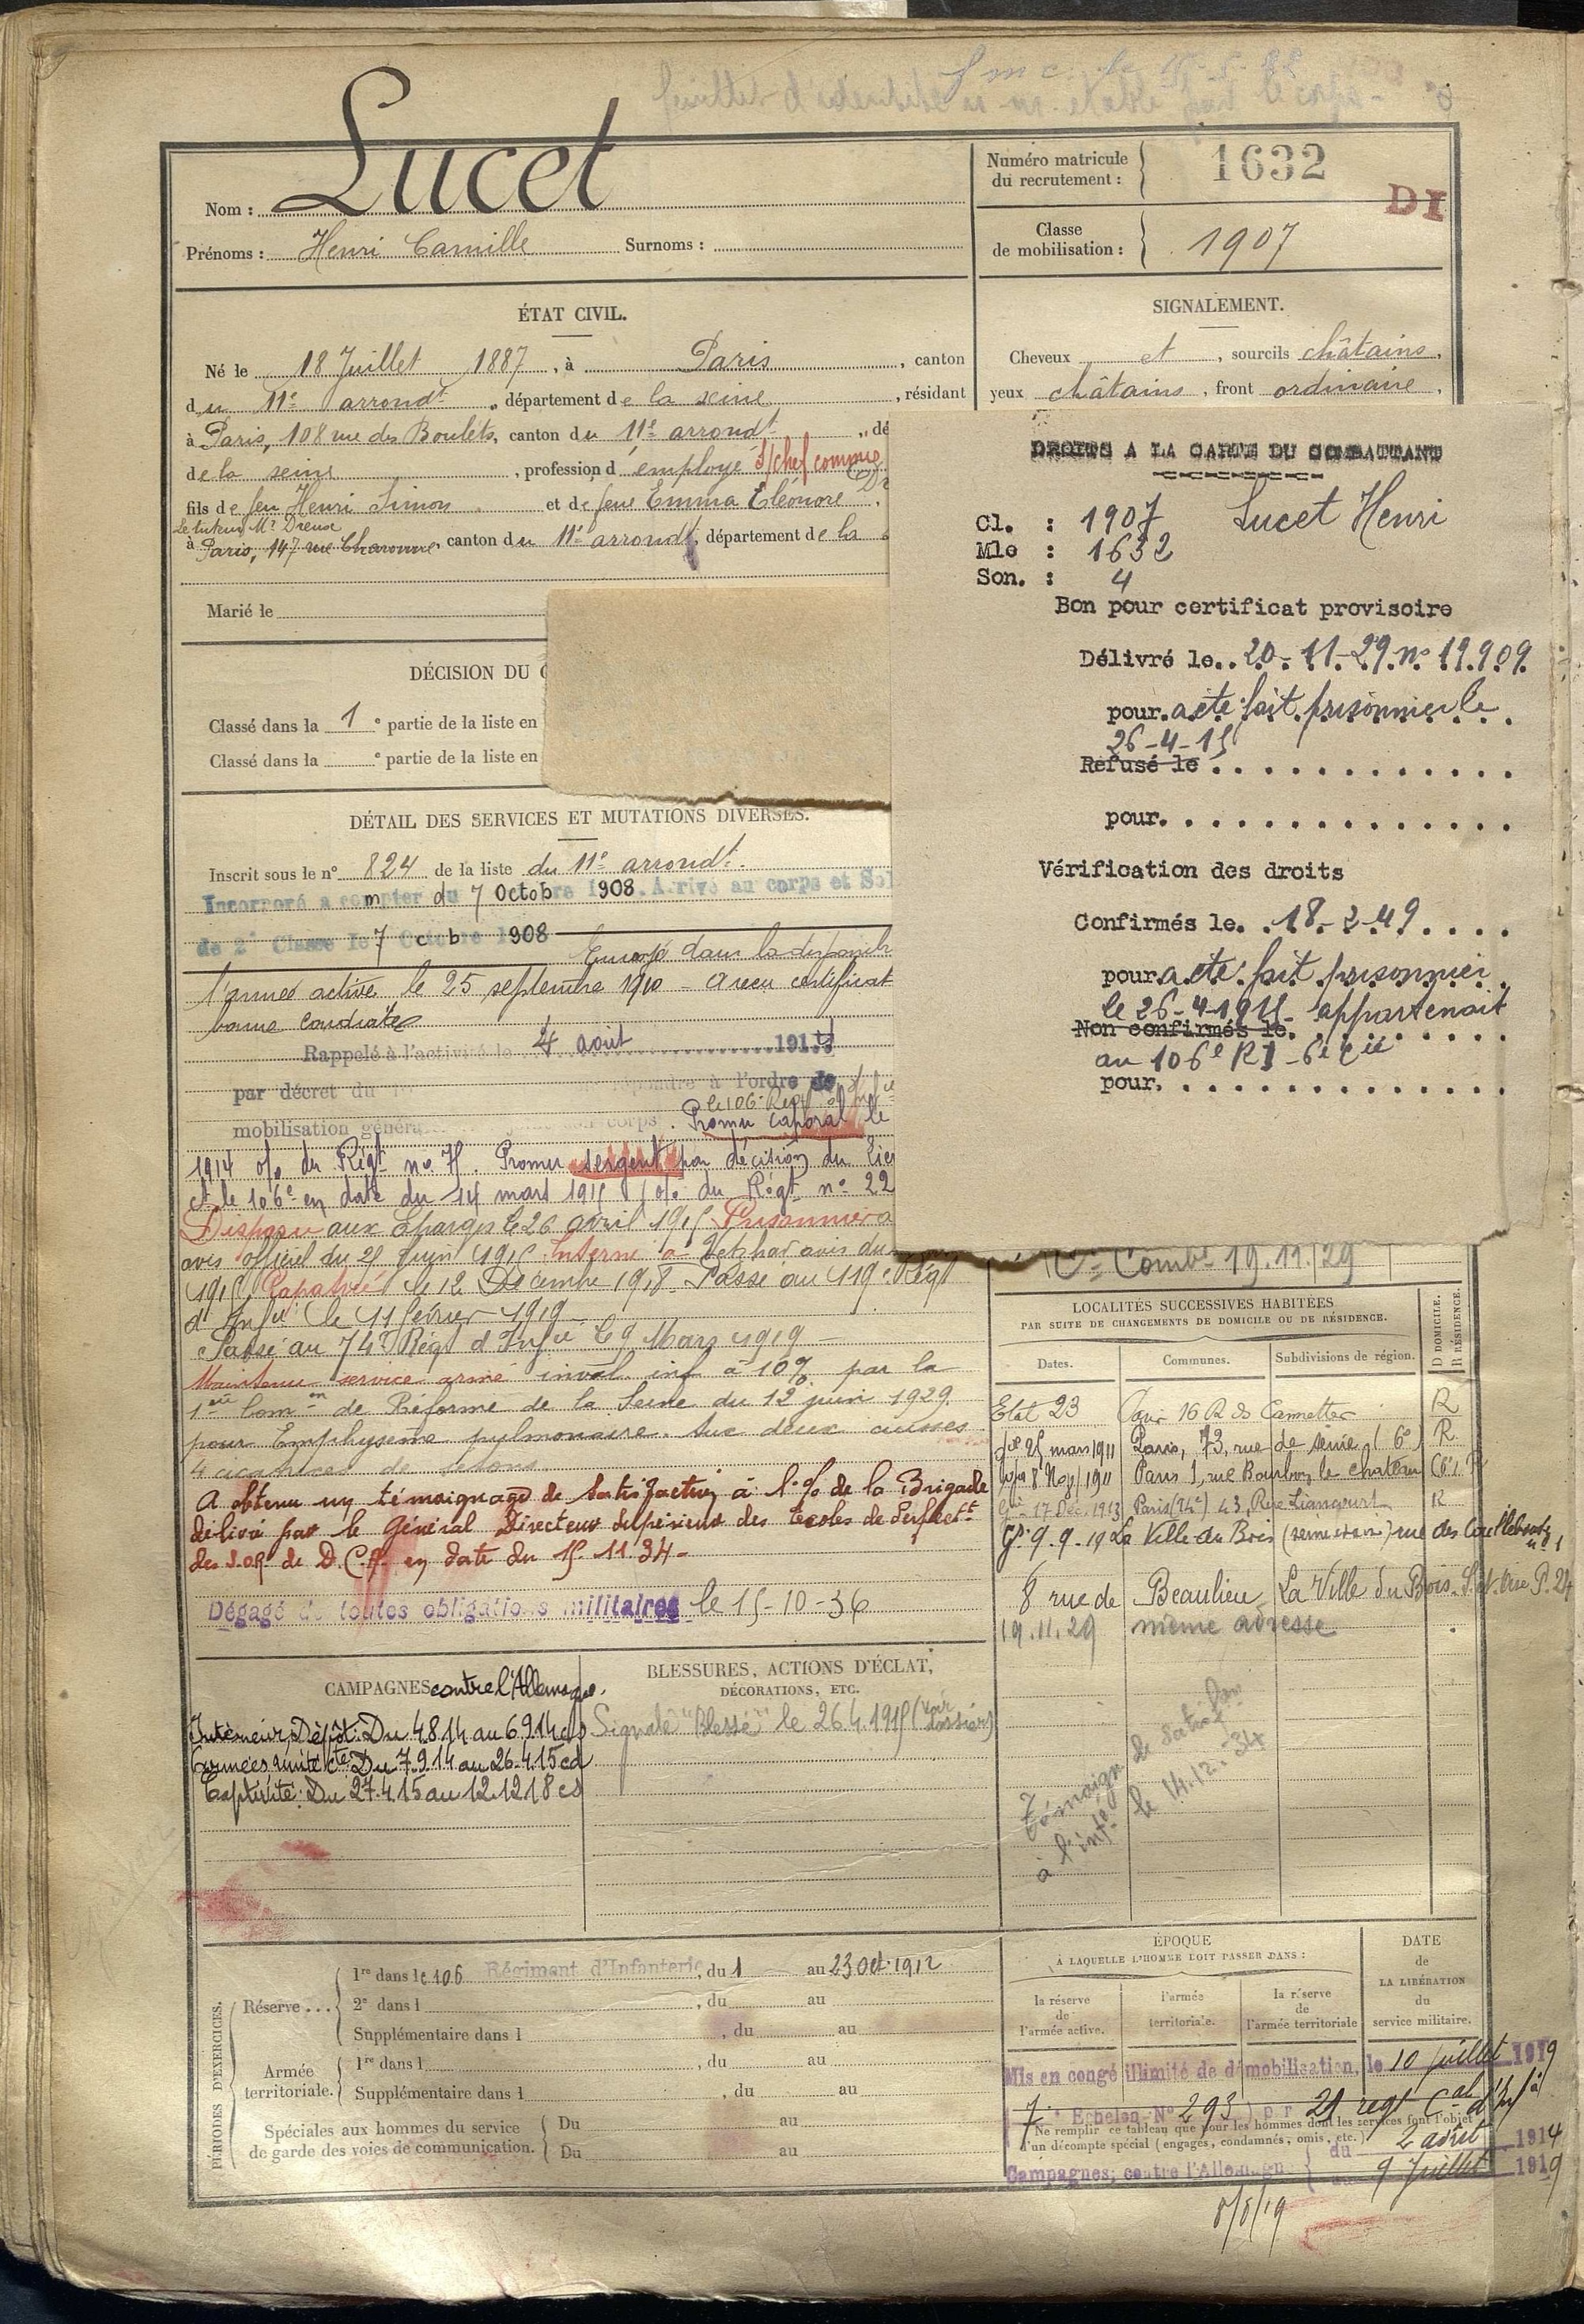 Lucet
Nom :
Prénoms : Henri Camille Surnoms :
Numéro matricule
du recrutement :
1632
DI
Classe
de mobilisation :
1907
ÉTAT CIVIL.
Né le 18 Juillet 1887, à Paris, canton
du 11e arrondt, département de la Seine, résidant
à Paris, 108 rue des Boulets, canton du 11e arrondt, dé
de la Seine, profession d'employé S/chef
fils de feu Henri Simon et de feue Emma Eléonore
Le tuteur Mr Dreux
à Paris, 147 rue Charonne, canton du 11e arrondt, département de la
Marié le
SIGNALEMENT.
Cheveux et, sourcils châtains,
yeux châtains, front ordinaire,
DÉCISION DU C
Classé dans la 1e partie de la liste en
Classé dans la e partie de la liste en
DROITS A LA CARTE DU COMBATTANT
Cl. : 1907 Lucet Henri
Mle : 1632
Son. : 4
Bon pour certificat provisoire
Délivré le. 20-11-29 no 19.909
pour a été fait prisonnier le
26-4-15
Refusé le
pour.
Vérification des droits
Confirmés le. 18-2-49
pour a été fait prisonnier
le 26-4-1915 appartenait
Non confirmés le.
au 106e RI - 6e Cie
pour.
DÉTAIL DES SERVICES ET MUTATIONS DIVERSES.
Inscrit sous le no 824 de la liste du 11e arrondt.
Incorporé a compter du 7 Octobre 1908. Arrivé au corps et Sol
de 2e Classe le 7 Octobre 1908
Envoyé dans la disponib
l'armée active le 25 septembre 1910 - a reçu certificat
bonne conduite
Rappelé à l'activité le 4 août 1914
par décret du à l'ordre de
le 106e Regt
mobilisation général corps. Promu caporal le
1914 o/o du Régt no 75. Promu sergent par décision du Lieu
Ct le 106e en date du 14 mars 1915 o/o du Régt no 22
Disparu aux Eparges le 26 avril 1915 Prisonnier
avis officiel du 25 Juin 1915 Interné à Wetzlar avis du
1915 Rapatrié le 12 Décembre 1918 Passé au 119e Régt
d'Infie le 11 février 1919
Passé au 74e Régt d'Infie le 9 Mars 1919
Maintenu service armé inval. inf à 10% par la
1ère Comon de Réforme de la Seine du 12 juin 1929.
pour Emphysème pulmonaire. Aux deux cuisses
4 cicatrices de sétons.
A obtenu un témoignage de satisfaction à l'o/o de la Brigade
délivré par le Général Directeur supérieur des Ecoles de Perfectt
des S.of. de D.C.A. en date du 15-11-34-
Dégagé de toutes obligations militaires le 15-10-36
Cte Combt 19.11/29
LOCALITÉS SUCCESSIVES HABITÉES
PAR SUITE DE CHANGEMENTS DE DOMICILE OU DE RÉSIDENCE.
D DOMICILE.
R RÉSIDENCE.
Dates. Communes. Subdivisions de région.
Paris 16 R des Cannettes R
25 mars 1911 Paris, 73, rue de Seine (6e) R
8 Nov 1911 Paris 1, rue Bourbon le Chateau (6e) R
17 Déc. 1913 Paris (14e) 43, Rue Liancourt R
9.9.19 La Ville du Bois (seine et oise) rue des
no 1
8 rue de Beaulieu La Ville du Bois
19.11.29 même adresse
Témoign de satisfon
à l'infé le 14.12.34
CAMPAGNES contre l'Allemagne.
Intérieur Dépôt: Du 4.8.14 au 6.9.14 cs
Armées unité cte: Du 7.9.14 au 26.4.15 cd
Captivité: Du 27.4.15 au 12.12.18 cs
BLESSURES, ACTIONS D'ÉCLAT,
DÉCORATIONS, ETC.
Signalé "Blessé" le 26.4.1915 (voir dossier)
PÉRIODES D'EXERCICES.
Réserve ... 1re dans le 106 Régiment d'Infanterie, du 1 au 23 Oct. 1912
2e dans l , du au
Supplémentaire dans l , du au
Armée territoriale. 1re dans l , du au
Supplémentaire dans l , du au
Spéciales aux hommes du service
de garde des voies de communication.
Du au
Du au
ÉPOQUE
A LAQUELLE L'HOMME DOIT PASSER DANS :
la réserve de l'armée active.
l'armée territoriale.
la réserve de l'armée territoriale
DATE
de
LA LIBÉRATION
du
service militaire.
Mis en congé illimité de démobilisation, le 10 Juillet 1919
7e Echelon No 293 par 21 regt Cal d'Inf
Ne remplir ce tableau que pour les hommes dont les services font l'objet
d'un décompte spécial (engagés, condamnés, omis, etc.)
Campagnes; contre l'Allemagne du 2 août 1914
au 9 Juillet 1919
8/8/19